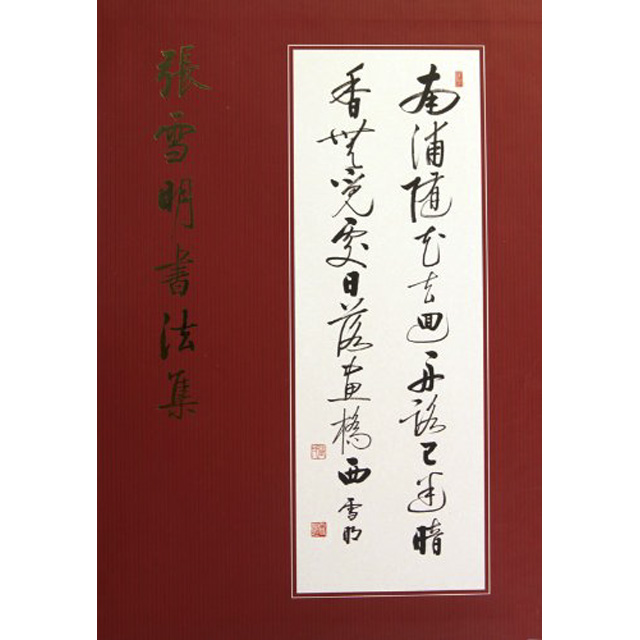 張雪明書法集
南浦隨花去迴舟路已迷暗
香無覓處日落畫橋西
雪明